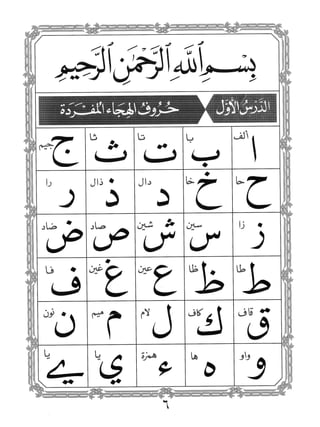 بِسْمِ اللَّهِ الرَّحْمَٰنِ الرَّحِيمِ
الدَّرْسُ الْأَوَّلُ حُرُوفُ الْهِجَاءِ الْمُفْرَدَةِ
ألف ا با ب تا ت ثا ث جيم ج
حا ح خا خ دال د ذال ذ را ر
زا ز سين س شين ش صاد ص ضاد ض
طا ط ظا ظ عين ع غين غ فا ف
قاف ق كاف ك لام ل ميم م نون ن
واو و ها ه همزة ء يا ي يا ے
٦